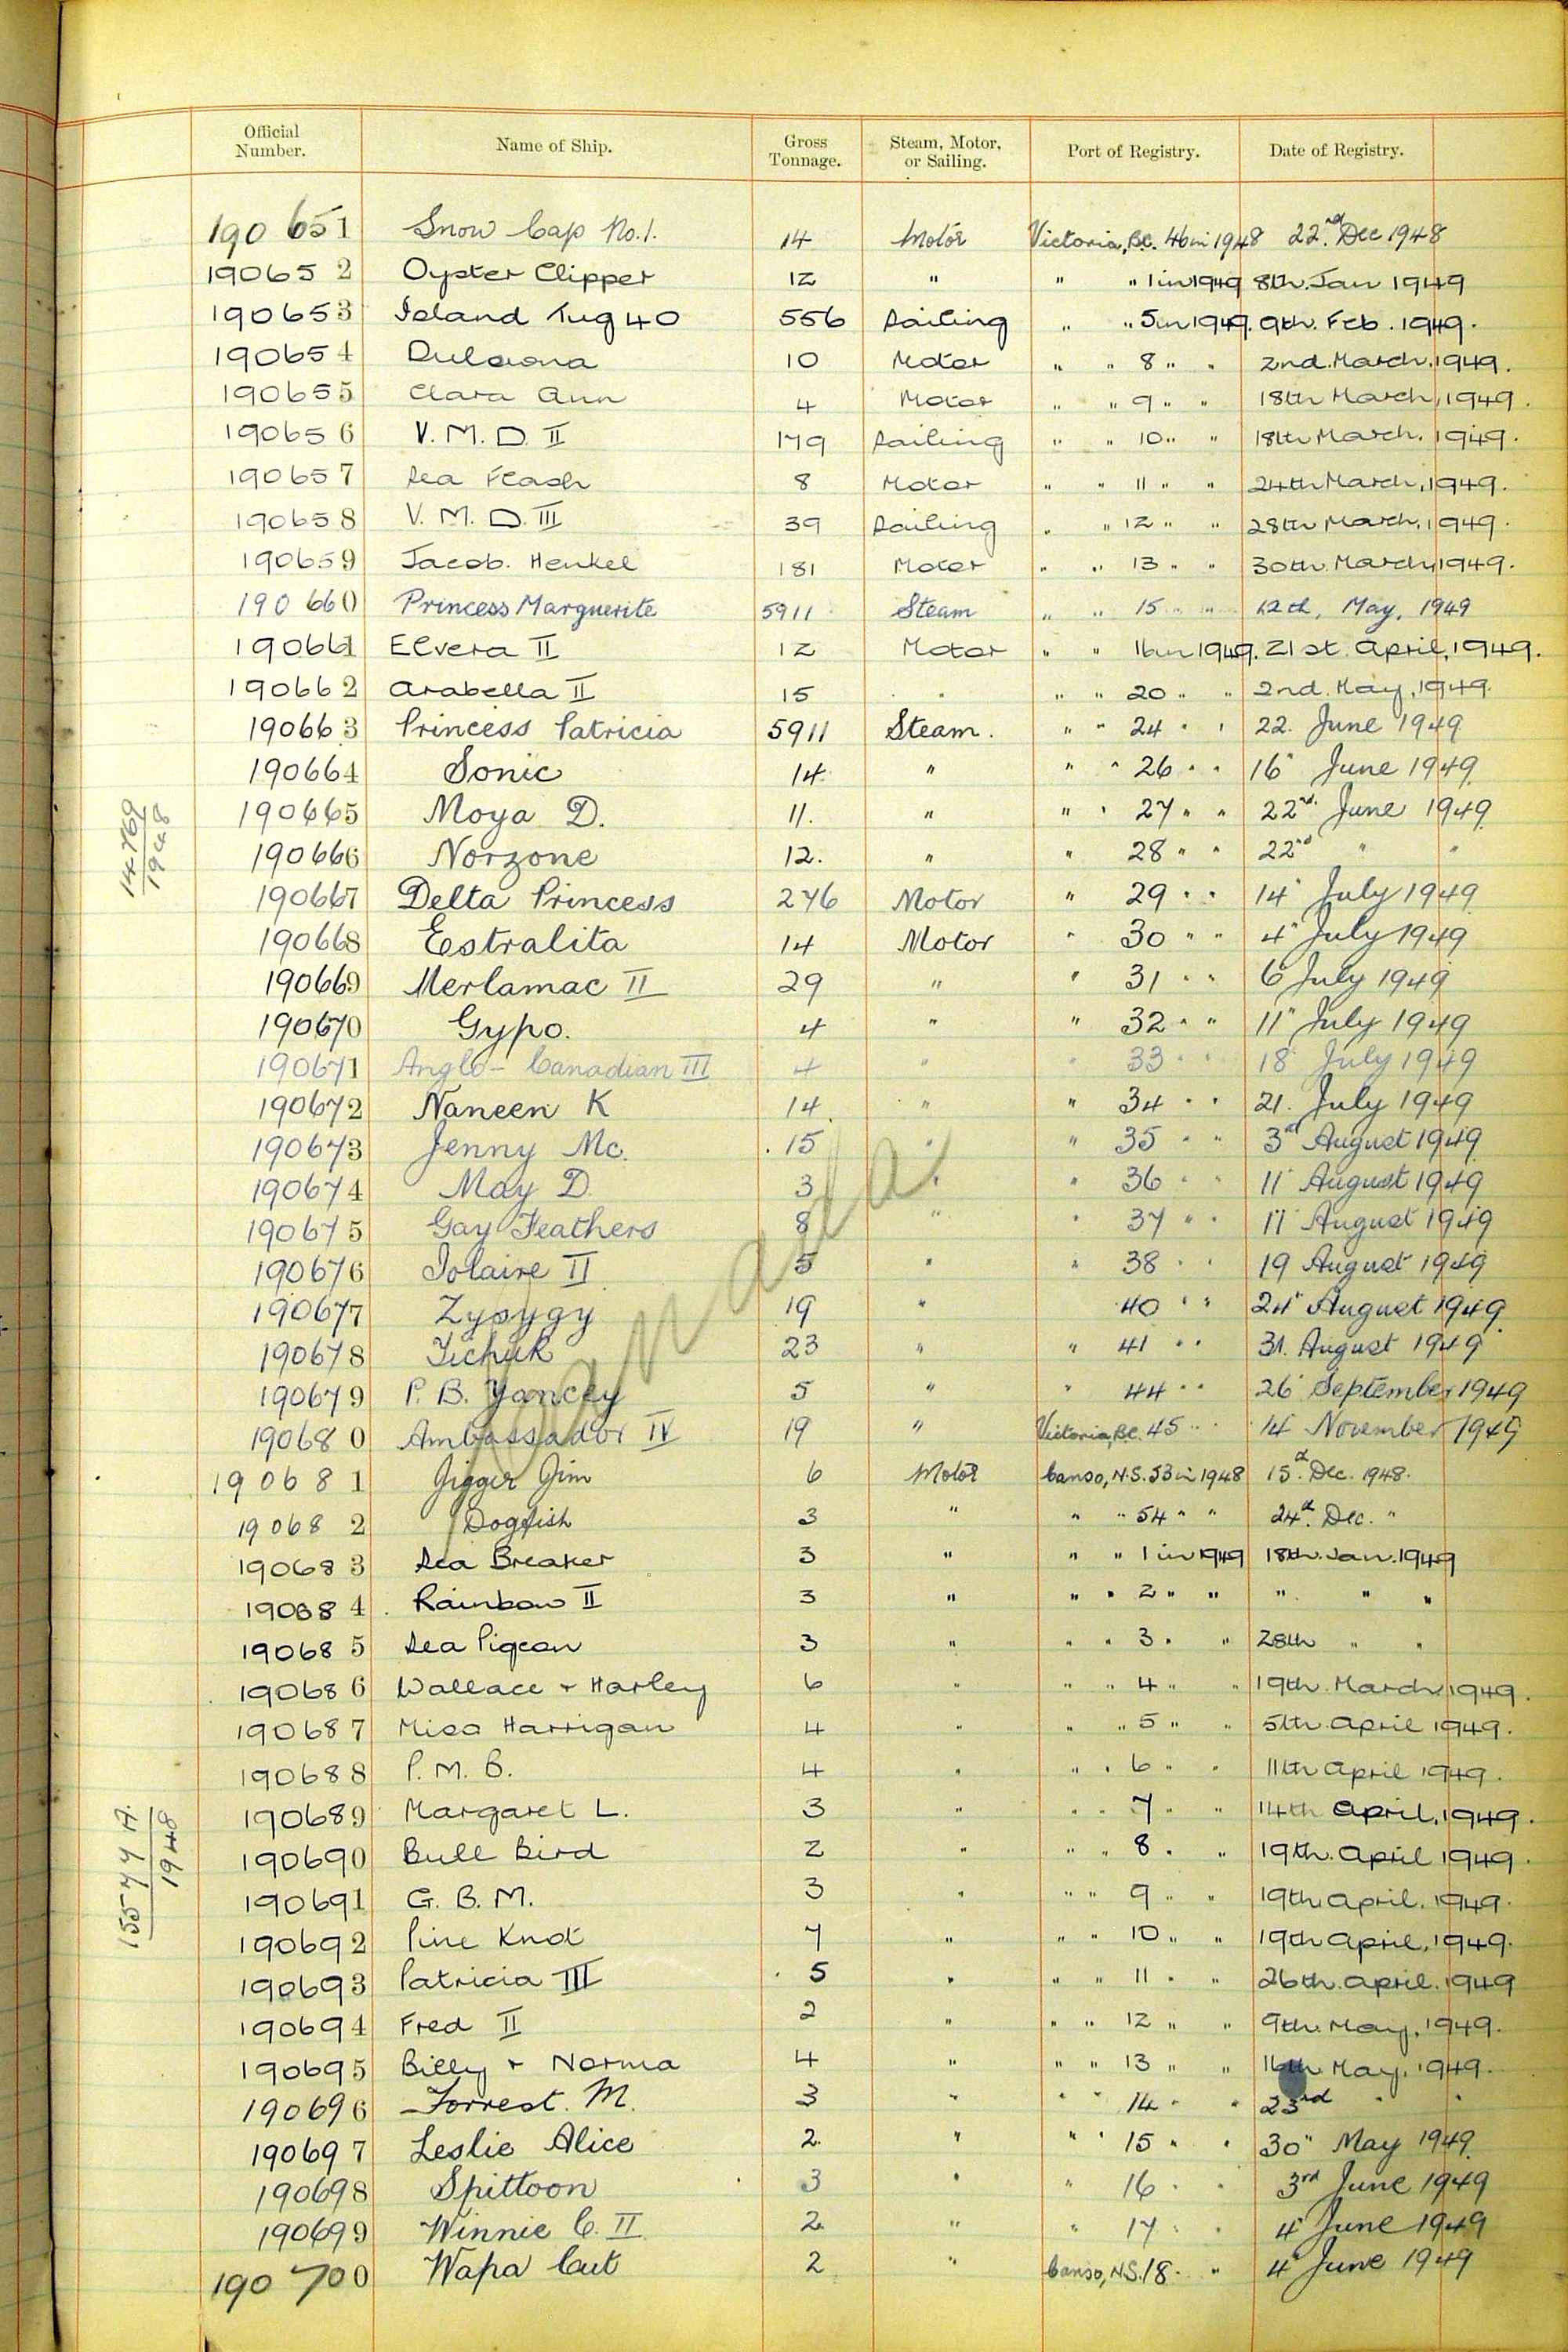 Official Number. Name of Ship. Gross Tonnage. Steam, Motor, or Sailing. Port of Registry. Date of Registry.
190651 Snow Cap No.1. 14 Motor Victoria, B.C. 46 in 1948 22nd Dec 1948
190652 Oyster Clipper 12 " " " 1 in 1949 8th. Jan 1949
190653 Island Tug 40 556 Sailing " " 5 in 1949. 9th. Feb. 1949.
190654 10 Motor " " 8 " " 2nd. March, 1949.
190655 Clara Ann 4 Motor " " 9 " " 18th March, 1949.
190656 V. M. D. II 179 Sailing " " 10 " " 18th March, 1949.
190657 Sea Flash 8 Motor " " 11 " " 24th March, 1949.
190658 V. M. D. III 39 Sailing " " 12 " " 28th March, 1949.
190659 Jacob. Henkel 181 Motor " " 13 " " 30th. March, 1949.
190660 Princess Marguerite 5911 Steam " " 15 " " 12th, May, 1949
190661 Elvera II 12 Motor " " 16 in 1949. 21st. April, 1949.
190662 Arabella II 15 " " " 20 " " 2nd. May, 1949.
190663 Princess Patricia 5911 Steam. " " 24 " " 22. June 1949
190664 Sonic 14 " " " 26 " " 16" June 1949
190665 Moya D. 11. " " " 27 " " 22nd. June 1949
190666 Norzone 12. " " 28 " " 22nd " "
14769 1948
190667 Delta Princess 276 Motor " 29 " " 14" July 1949
190668 Estralita 14 Motor " 30 " " 4" July 1949
190669 Merlamac II 29 " " 31 " " 6 July 1949
190670 Gypo. 4 " " 32 " " 11" July 1949
190671 Anglo-Canadian III 4 " " 33 " " 18 July 1949
190672 Naneen K 14. " " 34 " " 21. July 1949
190673 Jenny Mc. 15 " " 35 " " 3d August 1949
190674 May D. 3 " " 36 " " 11" August 1949
190675 Gay Feathers 8 " " 37 " " 11" August 1949
190676 Iolaire II 5 " " 38 " " 19 August 1949
190677 Zysygy 19 " 40 " " 24" August 1949
190678 23 " " 41 " " 31. August 1949
190679 P. B. Yancey 5 " " 44 " " 26" September 1949
190680 Ambassador IV 19 " Victoria, B.C. 45 " " 14 November 1949
Canada
190681 Jigger Jim 6 Motor Canso, N.S. 53 in 1948 15th. Dec. 1948.
190682 Dogfish 3 " " " 54 " " 24th. Dec. "
190683 Sea Breaker 3 " " " 1 in 1949 18th. Jan. 1949
190684 Rainbow II 3 " " " 2 " " " " "
190685 Sea Pigeon 3 " " " 3 " " 28th " "
190686 Wallace + Harley 6 " " " 4 " " 19th. March, 1949.
190687 Miss Harrigan 4 " " " 5 " " 5th. April 1949.
190688 P. M. B. 4 " " " 6 " " 11th April 1949.
190689 Margaret L. 3 " " " 7 " " 14th April, 1949.
190690 Bull Bird 2 " " " 8 " " 19th. April 1949.
15577 A. 1948
190691 G. B. M. 3 " " " 9 " " 19th April. 1949.
190692 Pine Knot 7 " " " 10 " " 19th April, 1949.
190693 Patricia III 5 " " " 11 " " 26th. April. 1949
190694 Fred II 2 " " " 12 " " 9th. May, 1949.
190695 Billy + Norma 4 " " " 13 " " 16th May, 1949.
190696 Forrest. M. 3 " " " 14 " " 23rd " "
190697 Leslie Alice 2. " " " 15 " " 30" May 1949
190698 Spittoon 3 " " 16 " " 3rd June 1949
190699 Winnie C. II 2 " " 17 " " 4" June 1949
190700 Wapa Cut 2 " Canso, N.S. 18 " " 4" June 1949